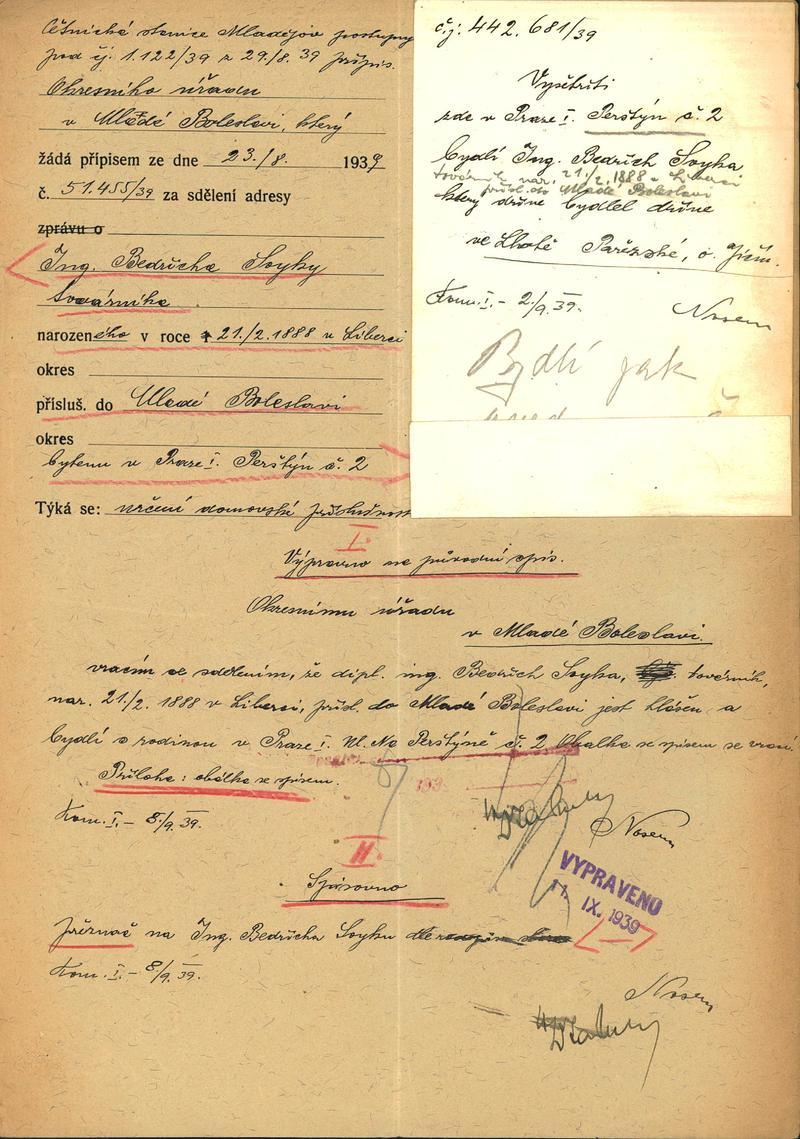 četnická stanice Mladějov postupuje
pod čj. 1.122/39 z 29./8. 39 přípis.
Okresního úřadu
v Mladé Boleslavi, který
žádá přípisem ze dne 23./8. 1939
č. 51.455/39 za sdělení adresy
zprávu o
Ing. Bedřicha Soyky
továrníka
narozeného v roce 21./2. 1888 v Liberci
okres
přísluš. do Mladé Boleslavi
okres
bytem v Praze I. Perštýn č. 2
Týká se: určení domovské příslušnosti
č.j. 442.681/39
Vyšetřiti
zde v Praze I. Perštýn č. 2
bydlí Ing. Bedřich Soyka
továrník nar. 21./2. 1888 v Liberci
přísl. do Mladé Boleslavi
který dříve bydlel
ve Lhotě Pařezské, o. Jičín.
Kom. I. - 2./9. 39.
Nosem
Bydlí jak
I.
Vypravno na původní spis.
Okresnímu úřadu
v Mladé Boleslavi.
vracím se sdělením, že dipl. ing. Bedřich Soyka, továrník,
nar. 21./2. 1888 v Liberci, přísl. do Mladé Boleslavi jest hlášen a
bydlí s rodinou v Praze I. Ul. Na Perštýně č. 2 Obálka se spisem se vrací.
Příloha: obálka se spisem.
Kom. I. - 8./9. 39.
Nosem
II.
VYPRAVENO
11. IX. 1939
Spisovno
přeznač na Ing. Bedřicha Soyku
Kom. I. - 8./9. 39.
Nosem